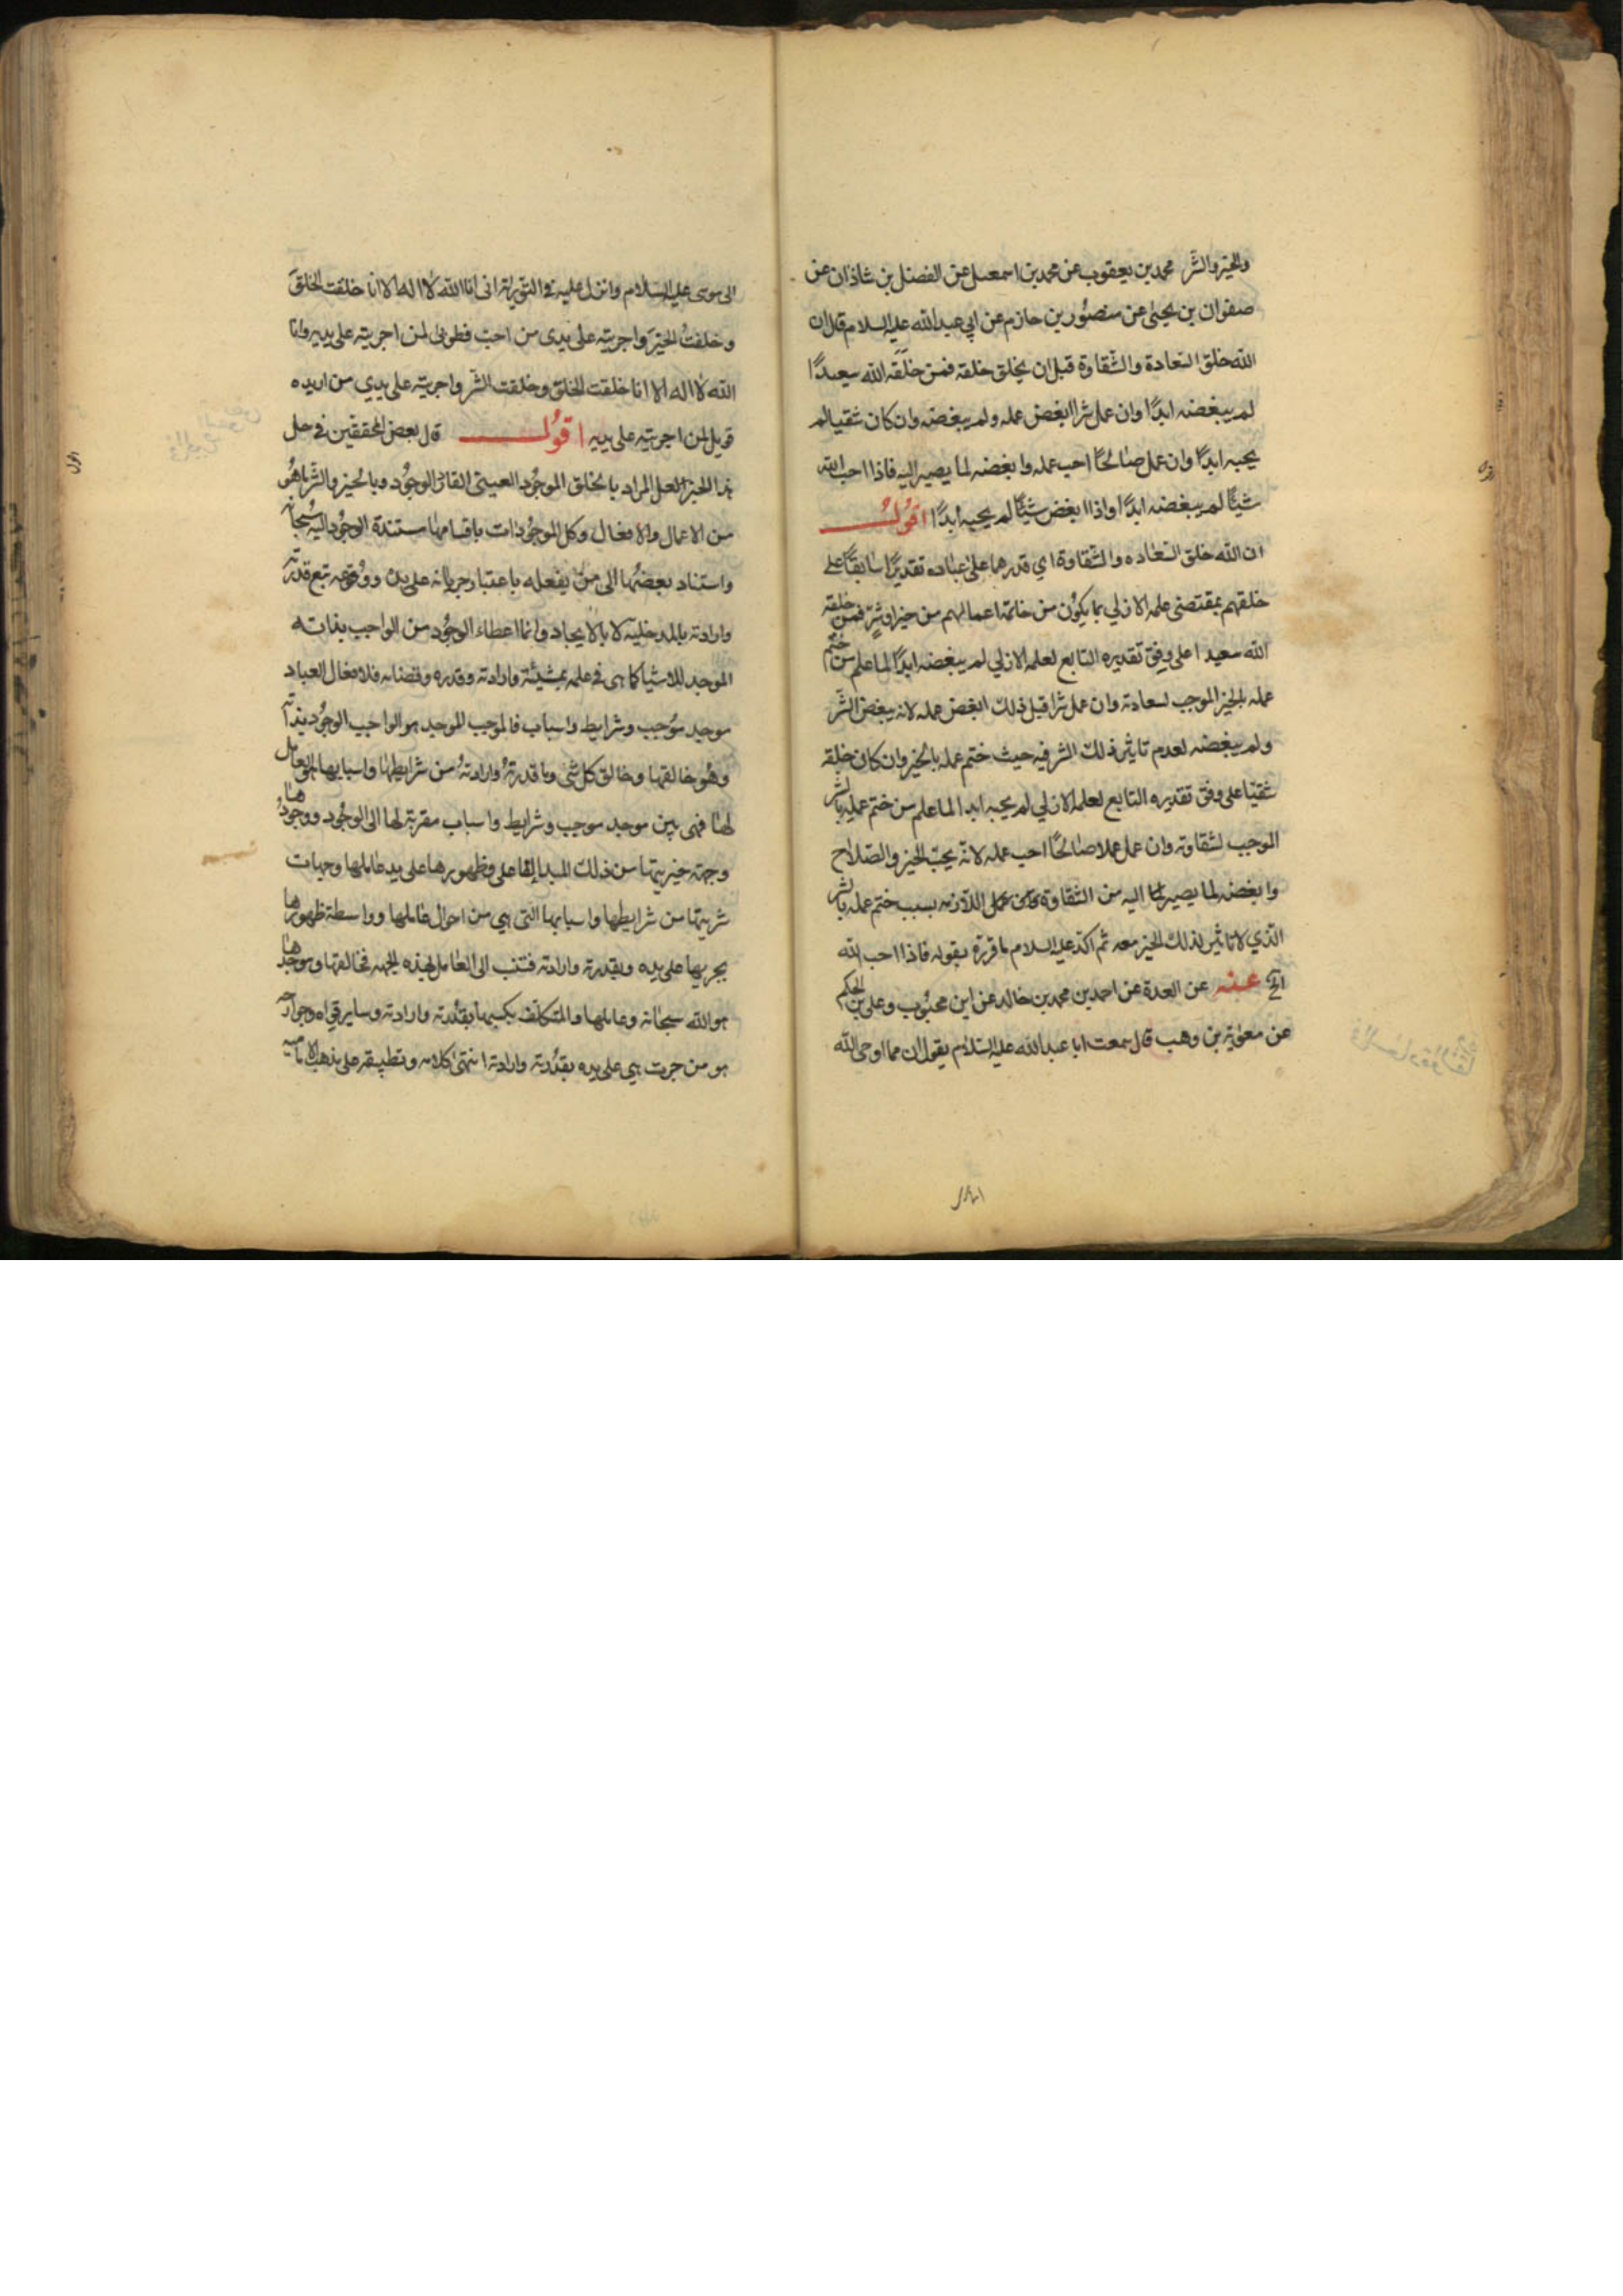 والخير والشر محمد بن يعقوب عن محمد بن اسمعيل عن الفضل بن شاذان عن
صفوان بن يحيى عن منصور بن حازم عن ابي عبد الله عليه السلام قال ان
الله خلق السعادة والشقاوة قبل ان يخلق خلقه فمن خلقه الله سعيدًا
لم يبغضه ابدًا وان عمل شرا ابغض عمله ولم يبغضه وان كان شقيا لم
يحبه ابدًا وان عمل صالحًا احب عمله وابغضه لما يصير اليه فاذا احب الله
شيئًا لم يبغضه ابدًا واذا ابغض شيئًا لم يحبه ابدًا اقول
ان الله خلق السعاده والشقاوة اي قدرهما على عباده تقديرًا سابقًا على
خلقهم بمقتضى علمه الازلي بما يكون من خاتمة اعمالهم من خير او شرٍ فمن خلقه
الله سعيدا على وفق تقديره التابع لعلمه الازلي لم يبغضه ابدًا لما علم من ختم
عمله بالخير الموجب لسعادته وان عمل شرا قبل ذلك ابغض عمله لانه يبغض الشّر
ولم يبغضه لعدم تاثير ذلك الشر فيه حيث ختم عمله بالخير وان كان خلقه
شقيّا على وفق تقديره التابع لعلمه الازلي لم يحبه ابدا لما علم من ختم عمله بالشر
الموجب لشقاوته وان عمل عملا صالحًا احب عمله لانّه يحبّ الخير والصّلاح
وابغضه لما يصير اليه من الشقاوة اللازمه بسبب ختم عمله بالشر
الّذي لا تاثير لذلك الخير معه ثم اكد عليه السلام ما قرره بقوله فاذا احب الله
الخ عنه عن العدة عن احمد بن محمد بن خالد عن ابن محبُوب وعلي بن الحكم
عن معوية بن وهب قال سمعت ابا عبد الله عليه السّلام يقول ان مما اوحى الله
الى موسى عليه السّلام وانزل عليه في التورية انى انا الله لا اله الا انا خلقت الخلق
وخلقتُ الخيرَ واجريته على يدى من احبّ فطوبى لمن اجريته على يديه وانا
الله لا اله الا انا خلقت الخلق وخلقت الشّر واجريته على يدي من اريده
فويل لمن اجريته على يديه اقول قال بعض المحققين في حل
هذا الخبر لعل المراد بالخلق الموجُود العينيّ القائض الوجُود وبالخير والشّر ما هُو
من الاعمال والافعال وكل الموجُودات باقسامها مستندة الوجُود اليه سُبحانه
واستناد بعضُها الى من يفعله باعتبار جريانه على يده ووقوعه تبع قدرته
وارادته بالمدخلية لا بالايجاد وانما اعطاء الوجُود من الواجب بذاته
الموجد للاشيا كما هى في علمه بمشيئة وارادته وقدره وقضائه فلافعال العباد
موجد موُجب وشرايط واسباب فالموجب الموجد هو الواجب الوجُود بذاته
وهُو خالقها وخالق كل شئ وما قدرتهُ وارادتهُ من شرايطها واسبابها التى للعامل
لها فهى بين موجد موجب وشرايط واسباب مقربة لها الى الوجُود ووجودها
وجهة خيريتها من ذلك المبدا الاعلى وظهورها على يد عاملها وجهات
شريتها من شرايطها واسبابها التى هي من احوال عاملها وواسطة ظهورها
يجريها على يده وبقدرته وارادته فتنسب الى العامل بهذه الجهه فخالقها وموجدها
هو الله سبحانه وعاملها والمتكلف بكسبها بقدرته وارادته وساير قواه وجوارحه
هو من جرت هي على يده بقدُرته وارادته انتهى كلامه وتطبيقه على مذهب الامامية